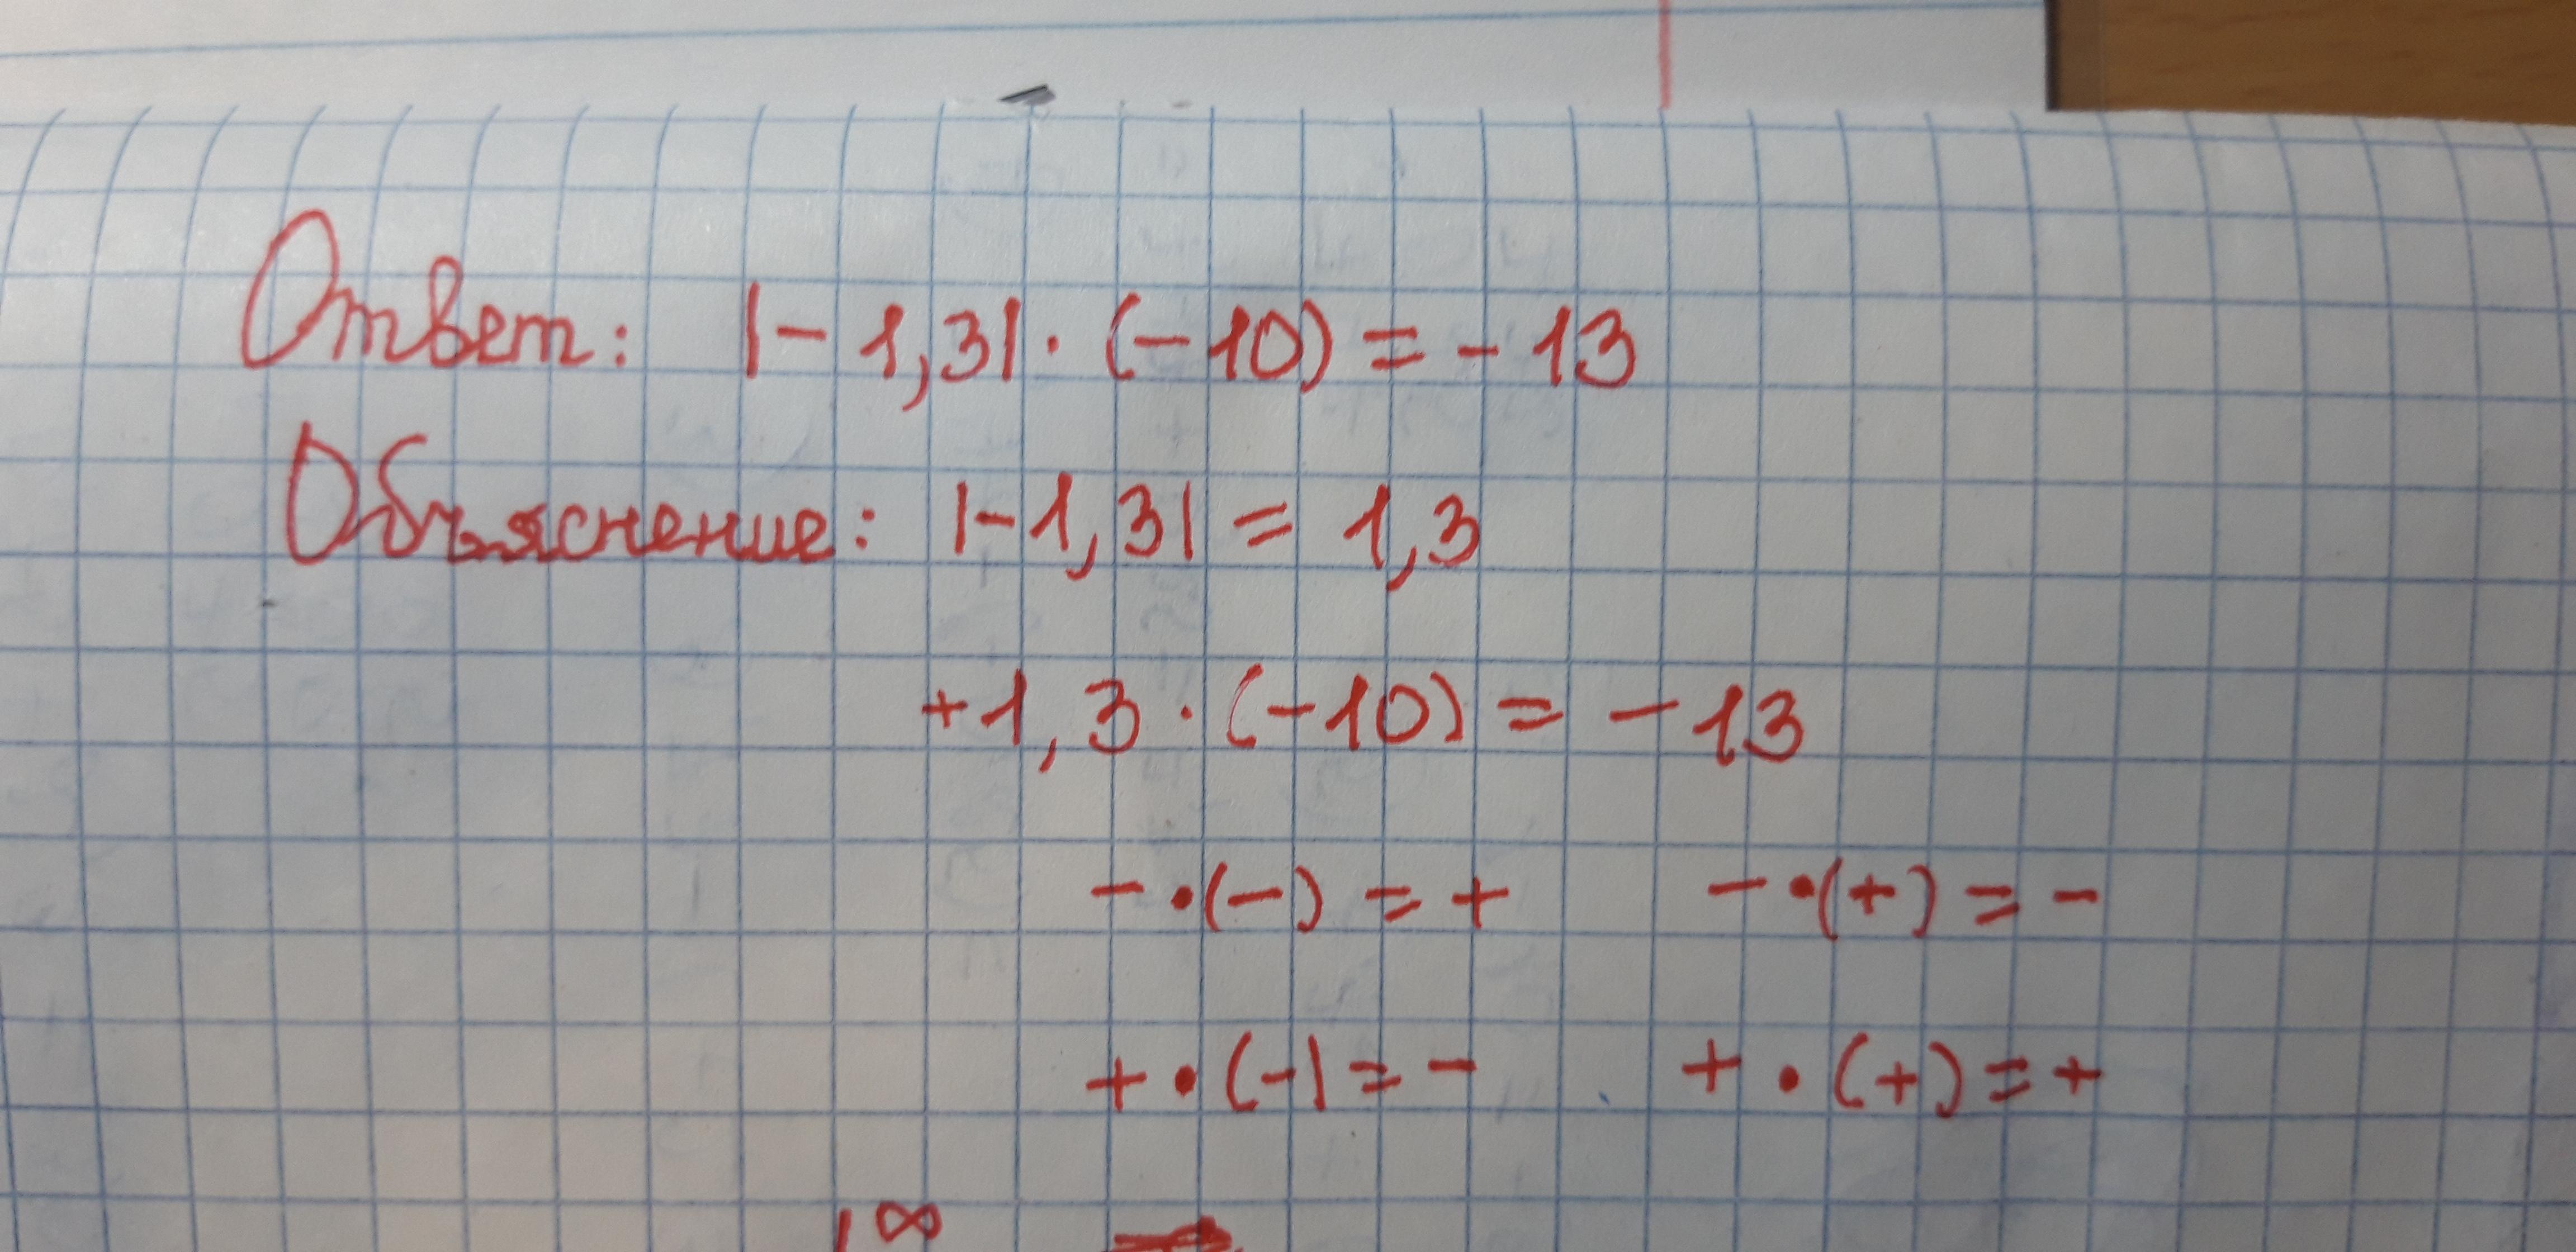 Ответ: |-1,3|·(-10)=-13
Объяснение: |-1,3|=1,3
+1,3·(-10)=-13
-·(-)=+ -·(+)=-
+·(-|=- +·(+)=+
∞